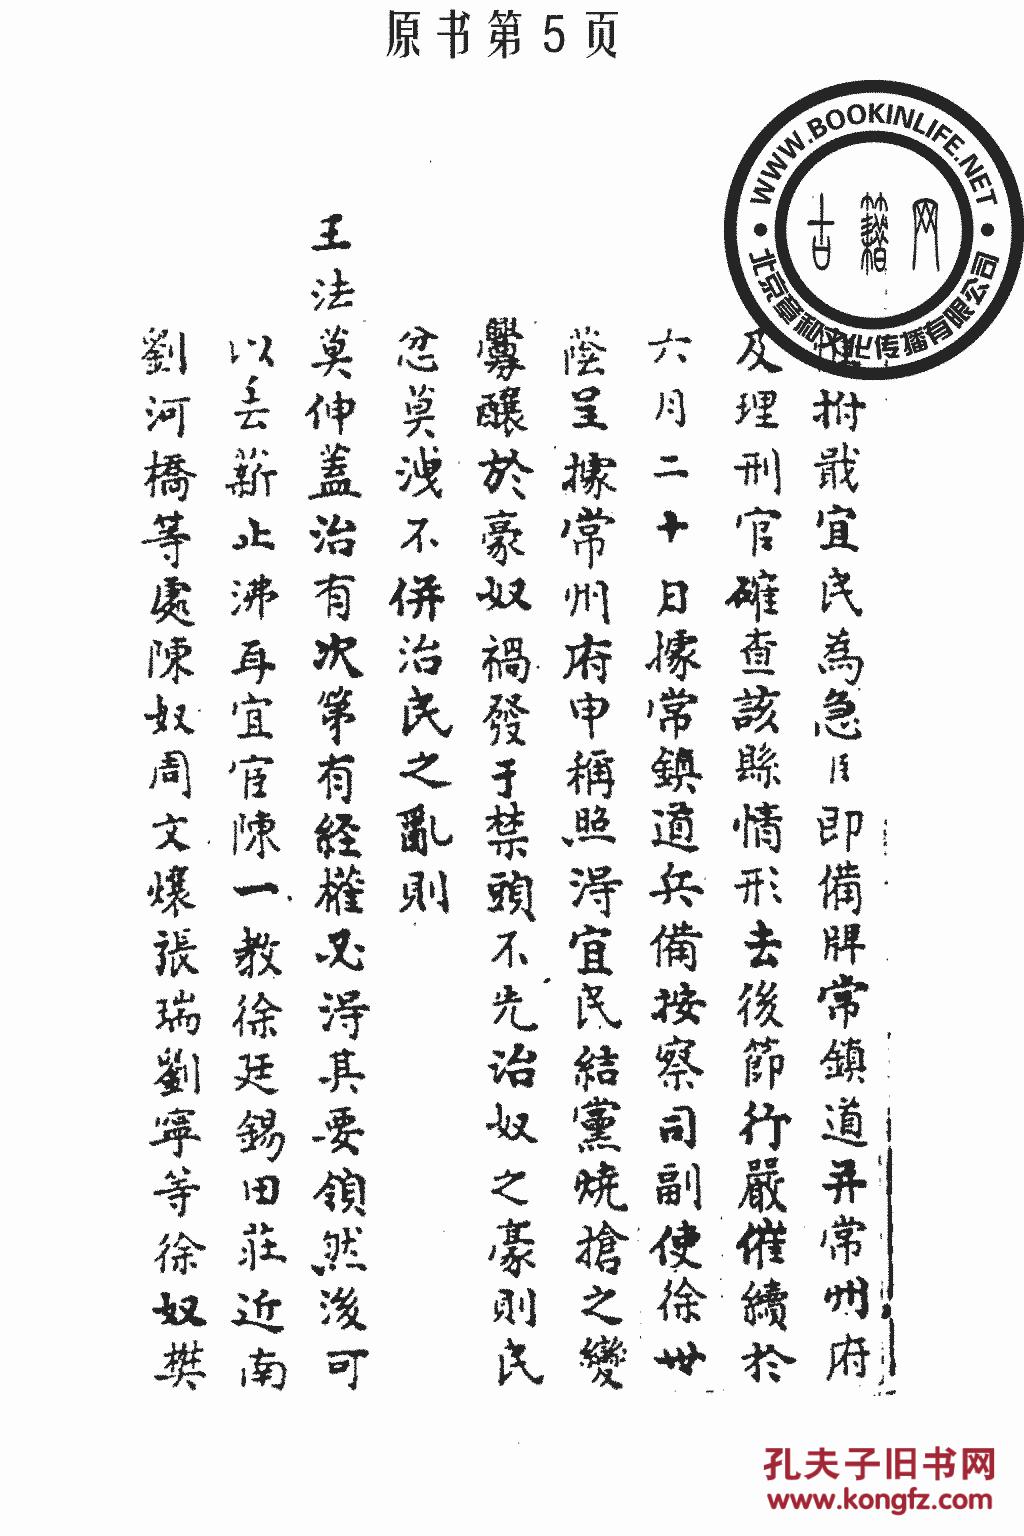 原书第5页
WWW.BOOKINLIFE.NET
古籍网
北京章和文化传播有限公司
拊戢宜民為急臣即備牌常鎮道并常州府
及理刑官確查該縣情形去後節行嚴催續於
六月二十日據常鎮道兵備按察司副使徐世
蔭呈據常州府申稱照得宜民結黨燒搶之變
釁釀於豪奴禍發于禁頭不先治奴之豪則民
忿莫洩不併治民之亂則
王法莫伸蓋治有次第有経權必得其要領然後可
以去薪止沸耳宜宦陳一教徐廷錫田莊近南
劉河橋等處陳奴周文爙張瑞劉寧等徐奴樊
孔夫子旧书网
www.kongfz.com